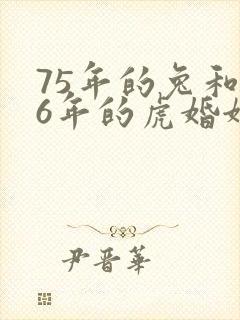 75年的兔和
6年的虎婚
尹晋华